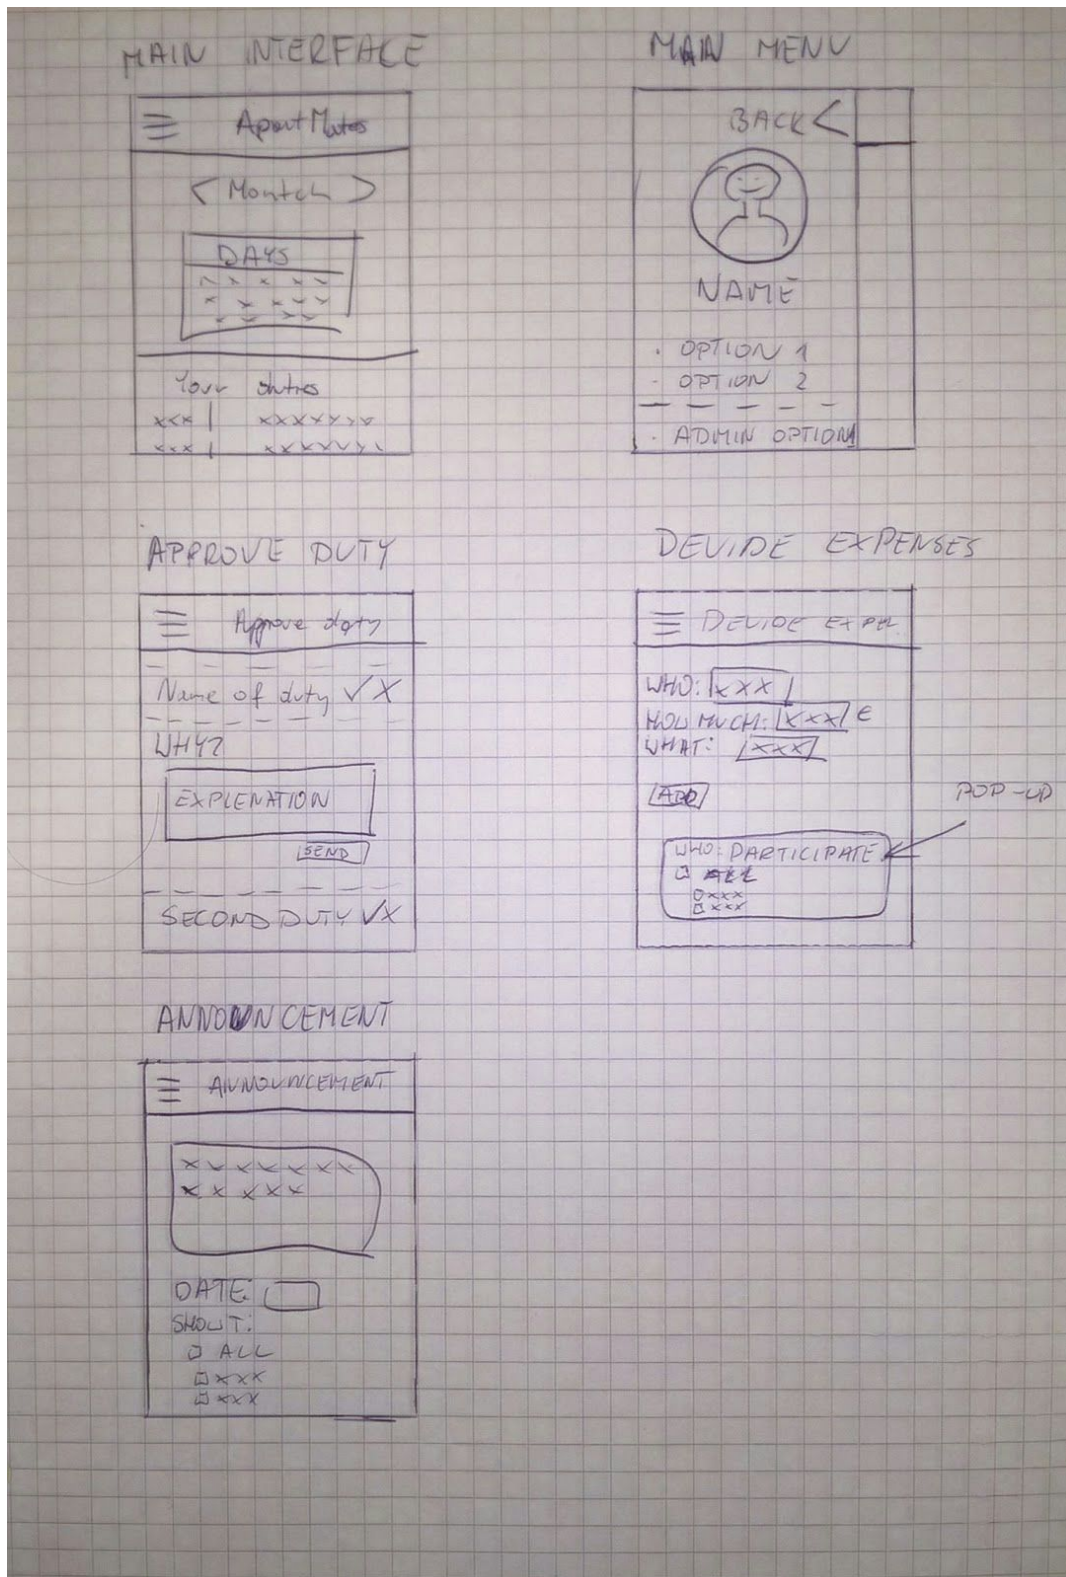 MAIN INTERFACE
ApartMates
< Montch >
DAYS
x x x x x
x x x x x
x x x x
Your duties
xxx | xxxxxxx
xxx | xxxxxxx
MAIN MENU
BACK <
NAME
· OPTION 1
- OPTION 2
· ADMIN OPTION1
APPROVE DUTY
Approve duty
Name of duty ✓ X
WHY?
EXPLENATION
SEND
SECOND DUTY ✓ X
DEVIDE EXPENSES
DEVIDE EXPEN
WHO: xxx
HOW MUCH: xxx €
WHAT: xxx
ADD
POP-UP
WHO: PARTICIPATE
ALL
xxx
xxx
ANNOUNCEMENT
ANNOUNCEMENT
x x x x x x x
x x x x x
DATE:
SHOW T:
ALL
xxx
xxx